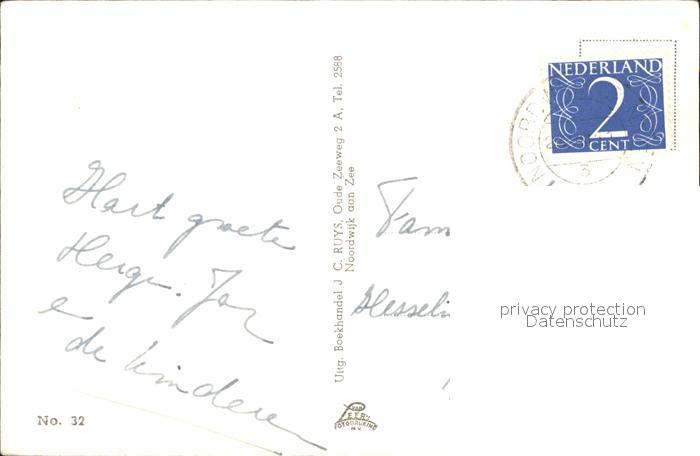 NEDERLAND
2
CENT
NOORD
Hart groete
Jan
e
de kinderen
No. 32
Uitg. Boekhandel J. C. RUYS, Oude Zeeweg 2 A, Tel. 2588
Noordwijk aan Zee
VAN
LEER'S
FOTODRUKIND
N.V.
Fam
Hesselin
privacy protection
Datenschutz